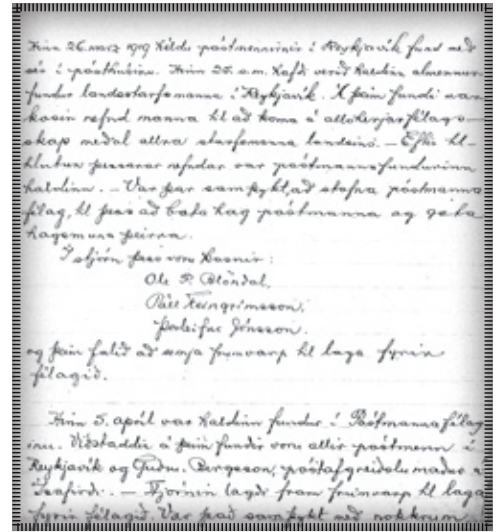 Hinn 26. marz 1919 héldu póstmennirnir í Reykjavík fund með
sér í pósthúsinu. Hinn 25. s.m. hafði verið haldinn almennur
fundur landsstarfsmanna í Reykjavík. Á þeim fundi var
kosin nefnd manna til að koma á allsherjarfélags-
skap meðal allra starfsmanna landsins. – Eftir til-
hlutun þessarar nefndar var póstmannafundurinn
haldinn. – Var þar samþykt, að stofna póstmanna
félag, til þess að bæta hag póstmanna og gæta
hagsmuna þeirra.
Í stjórn þess voru kosnir:
Óle P. Blöndal,
Páll Steingrímsson,
Þorleifur Jónsson.
og þeim falið að semja frumvarp til laga fyrir
félagið.
Hinn 5. apríl var haldinn fundur í Póstmannafélag
inu. Viðstaddir á þeim fundi voru allir póstmenn í
Reykjavík og Guðm. Bergsson, póstafgreiðslumaður á
Ísafirði. – Stjórnin lagði fram frumvarp til laga
fyrir félagið. Var það samþykt með nokkrum